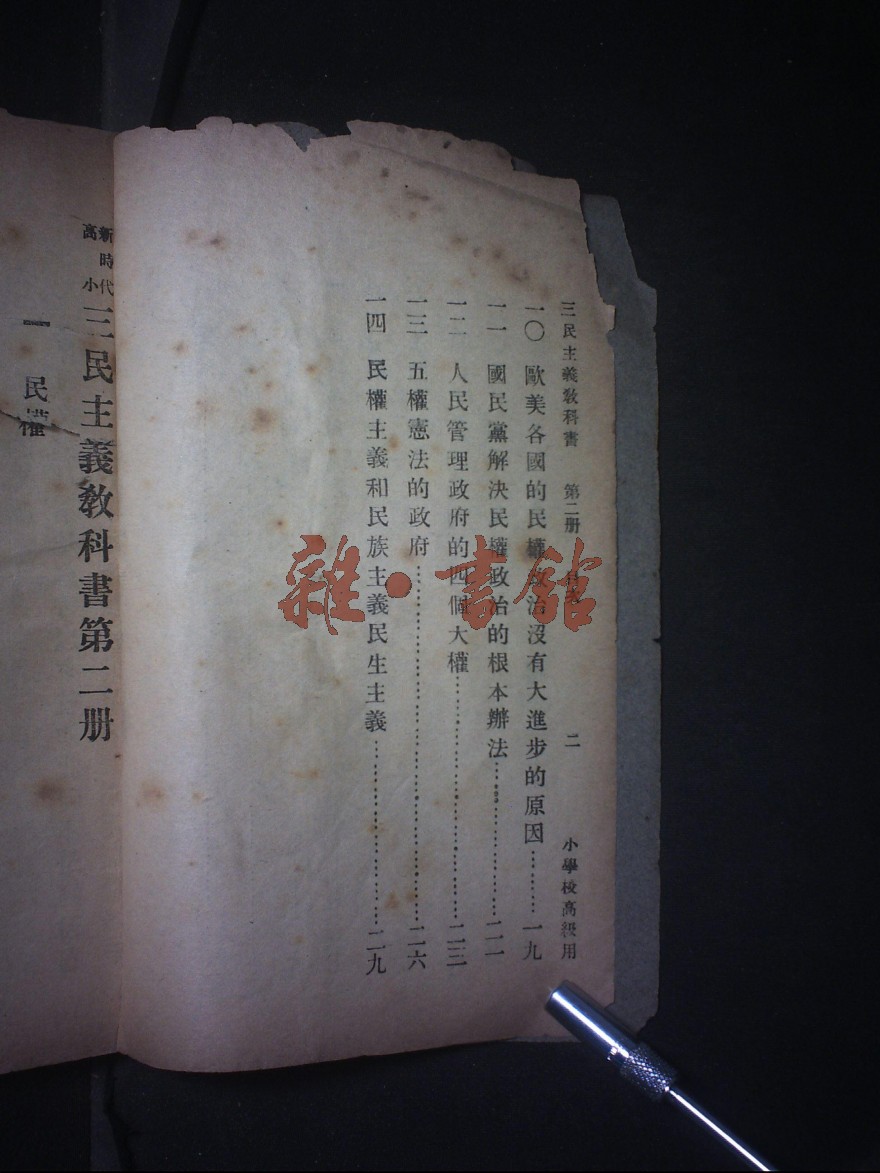 三民主義教科書 第二册 目次 二 小學校高級用
一〇 歐美各國的民權政治沒有大進步的原因…………一九
一一 國民黨解決民權政治的根本辦法…………二一
一二 人民管理政府的四個大權…………二三
一三 五權憲法的政府…………二六
一四 民權主義和民族主義民生主義…………二九
新時代高小三民主義教科書第二册
一 民權
雜·書館